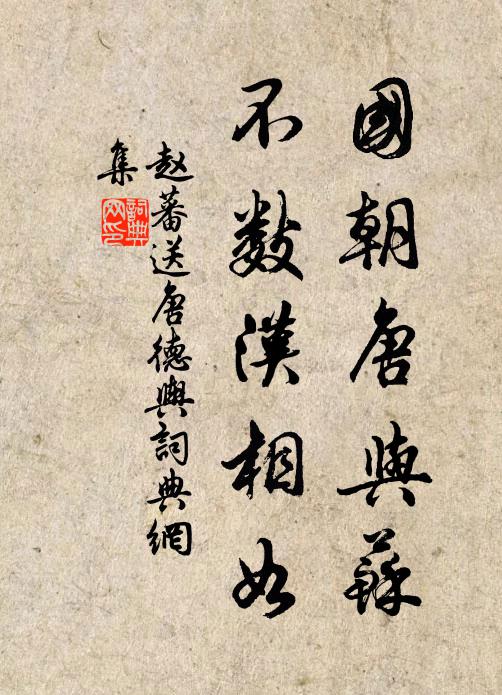 國朝唐與蘇
不數漢相如
赵蕃送唐德輿詞典網
集
詞典網印